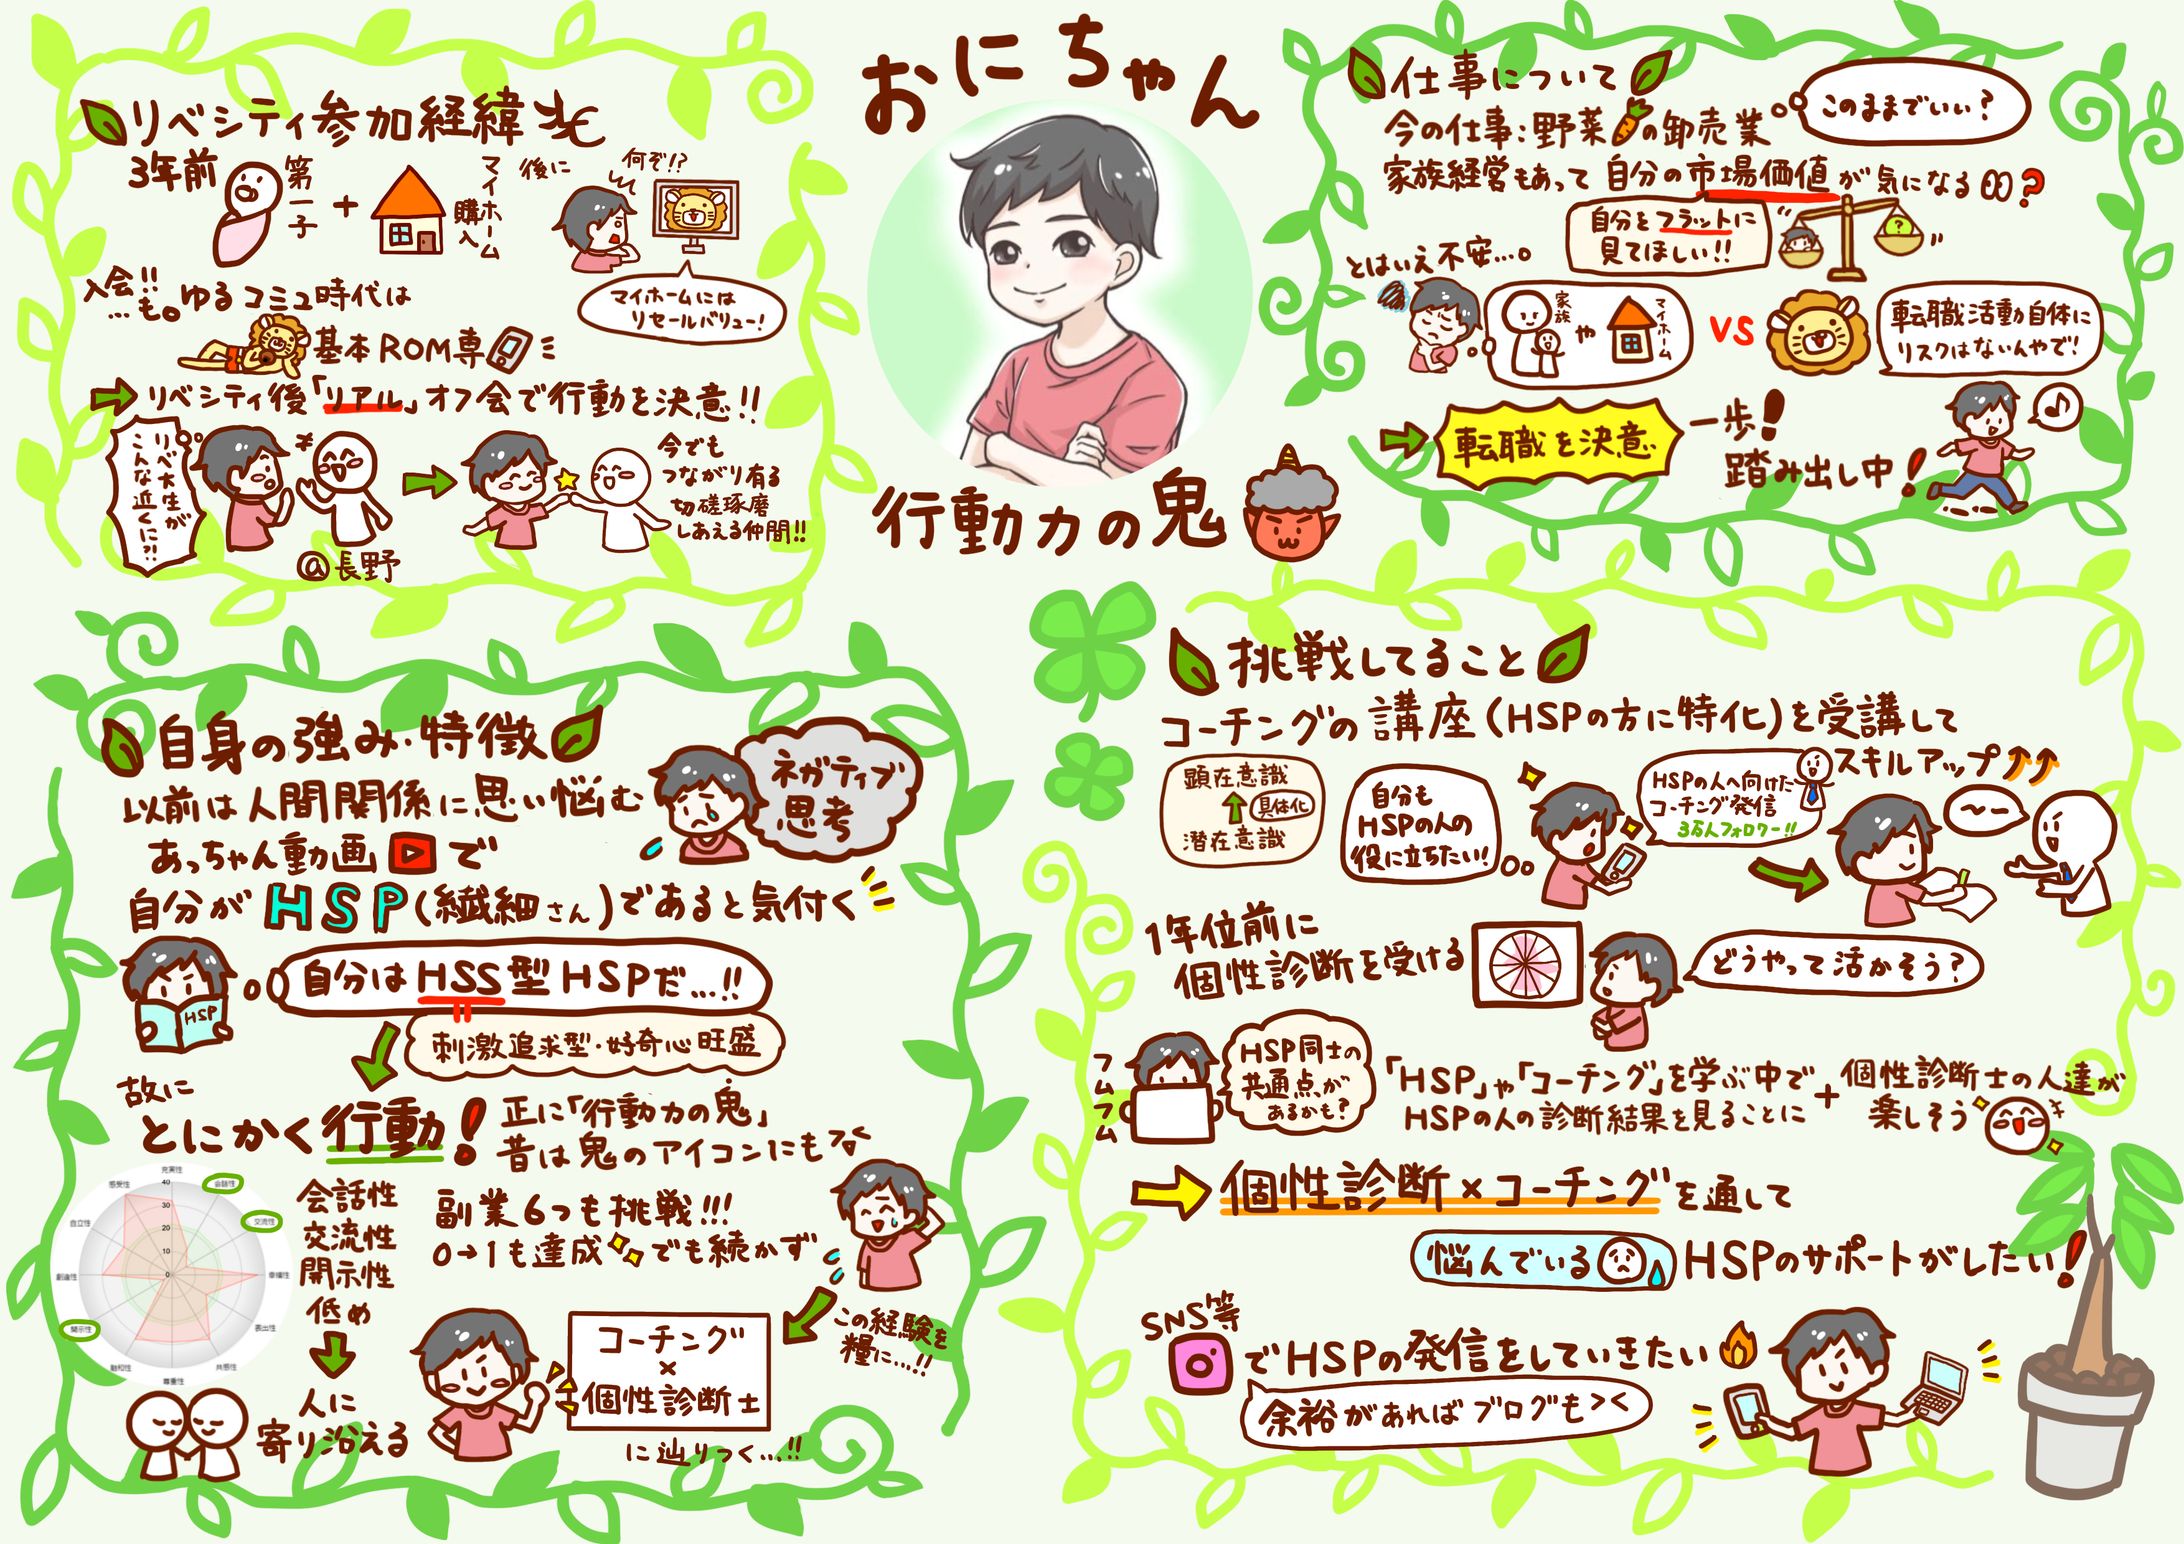 おにちゃん
行動力の鬼
リベシティ参加経緯
3年前
第一子
+
マイホーム
購入
後に
何ぞ!?
マイホームには
リセールバリュー!
入会!!
…も。ゆるコミュ時代は
基本ROM専
リベシティ後「リアル」オフ会で行動を決意!!
リベ大生が
こんな近くに?!
@長野
今でも
つながり有る
切磋琢磨
しあえる仲間!!
仕事について
今の仕事:野菜の卸売業
このままでいい?
家族経営もあって自分の市場価値が気になる?
自分をフラットに
見てほしい!!
?
とはいえ不安…。
家族
や
マイホーム
VS
転職活動自体に
リスクはないんやで!
転職を決意
一歩!
踏み出し中!
自身の強み・特徴
以前は人間関係に思い悩む
ネガティブ
思考
あっちゃん動画で
自分がHSP(繊細さん)であると気付く
HSP
自分はHSS型HSPだ…!!
刺激追求型・好奇心旺盛
故に
とにかく行動!
正に「行動力の鬼」
昔は鬼のアイコンにも
充実性
会話性
交流性
幸福性
表出性
共感性
尊重性
融和性
開示性
創造性
自立性
感受性
40
30
20
10
0
会話性
交流性
開示性
低め
人に
寄り沿える
副業6つも挑戦!!!
0→1も達成でも続かず
この経験を
糧に…!!
コーチング
×
個性診断士
に辿りつく…!!
挑戦してること
コーチングの講座(HSPの方に特化)を受講して
スキルアップ
顕在意識
具体化
潜在意識
自分も
HSPの人の
役に立ちたい!
HSPの人へ向けた
コーチング発信
3万人フォロワー!!
1年位前に
個性診断を受ける
どうやって活かそう?
フムフム
HSP同士の
共通点が
あるかも?
「HSP」や「コーチング」を学ぶ中で
HSPの人の診断結果を見ることに
+
個性診断士の人達が
楽しそう
個性診断×コーチングを通して
悩んでいるHSPのサポートがしたい!
SNS等
でHSPの発信をしていきたい
余裕があればブログも